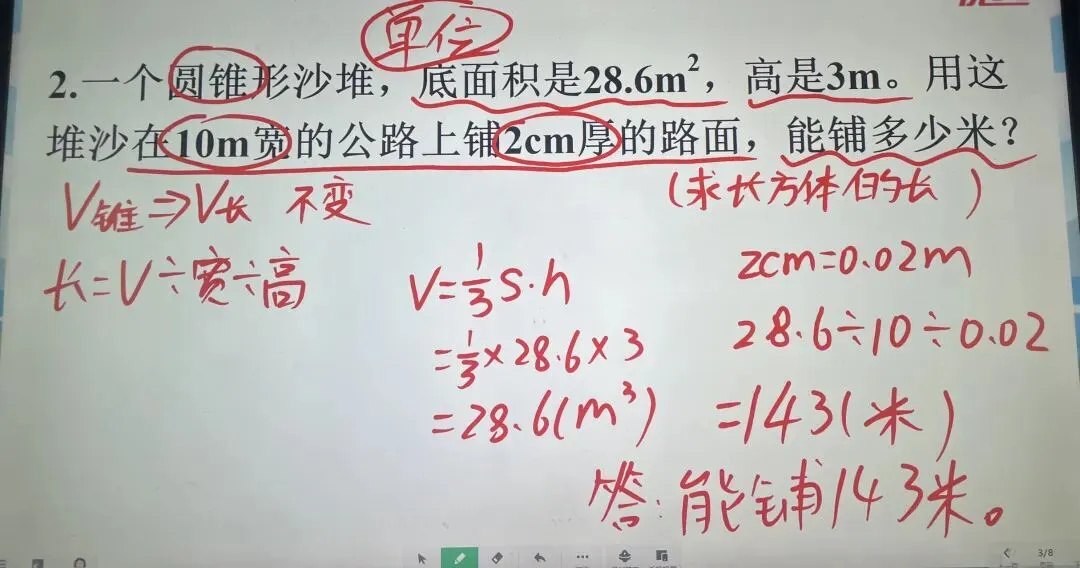 单位
2.一个圆锥形沙堆，底面积是28.6m²，高是3m。用这
堆沙在10m宽的公路上铺2cm厚的路面，能铺多少米？
V锥⇒V长 不变
(求长方体的长)
长=V÷宽÷高
V=1/3 S·h
=1/3×28.6×3
=28.6(m³)
2cm=0.02m
28.6÷10÷0.02
=143(米)
答:能铺143米。
3/8